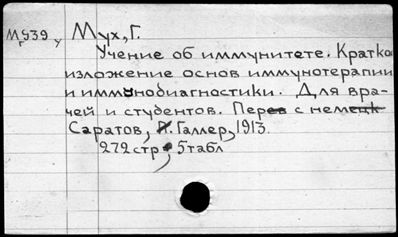 Мг939 у Мух, Г.
Учение об иммунитете. Кратко
изложение основ иммунотерапии
и иммунодиагностики. Для вра-
чей и студентов. Перев с немецк
Саратов, Я. Галлер, 1913.
272 стр, 5 табл